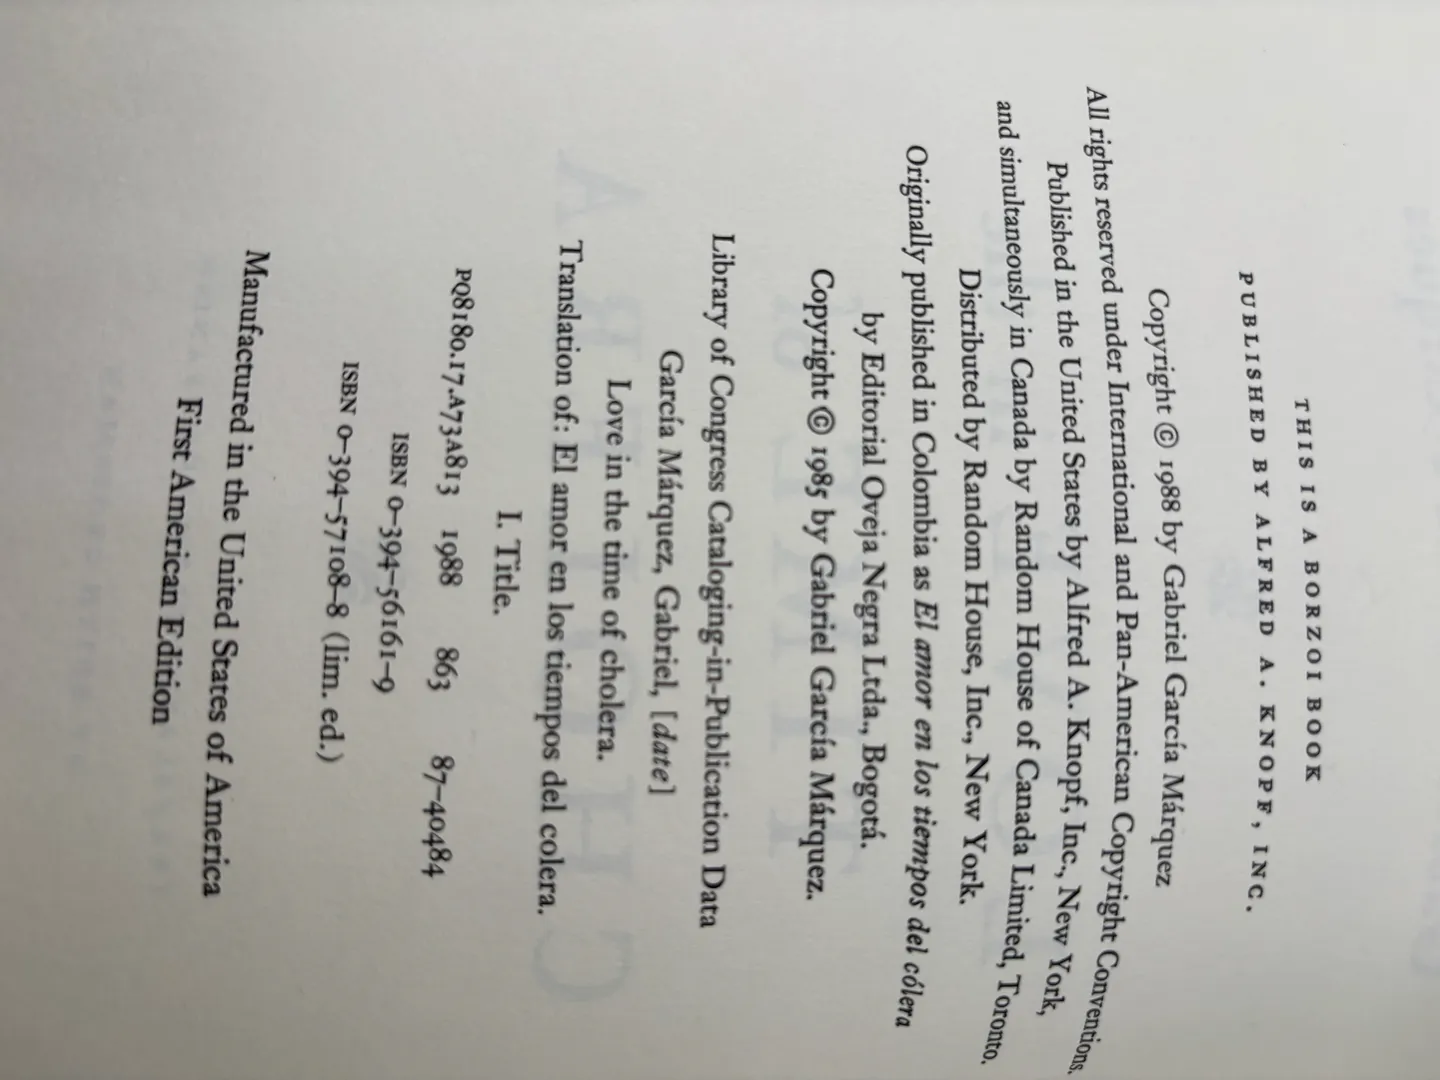 THIS IS A BORZOI BOOK
PUBLISHED BY ALFRED A. KNOPF, INC.
Copyright © 1988 by Gabriel García Márquez
All rights reserved under International and Pan-American Copyright Conventions.
Published in the United States by Alfred A. Knopf, Inc., New York,
and simultaneously in Canada by Random House of Canada Limited, Toronto.
Distributed by Random House, Inc., New York.
Originally published in Colombia as El amor en los tiempos del cólera
by Editorial Oveja Negra Ltda., Bogotá.
Copyright © 1985 by Gabriel García Márquez.
Library of Congress Cataloging-in-Publication Data
García Márquez, Gabriel, [date]
Love in the time of cholera.
Translation of: El amor en los tiempos del colera.
I. Title.
PQ8180.17.A73A813 1988 863 87-40484
ISBN 0-394-56161-9
ISBN 0-394-57108-8 (lim. ed.)
Manufactured in the United States of America
First American Edition